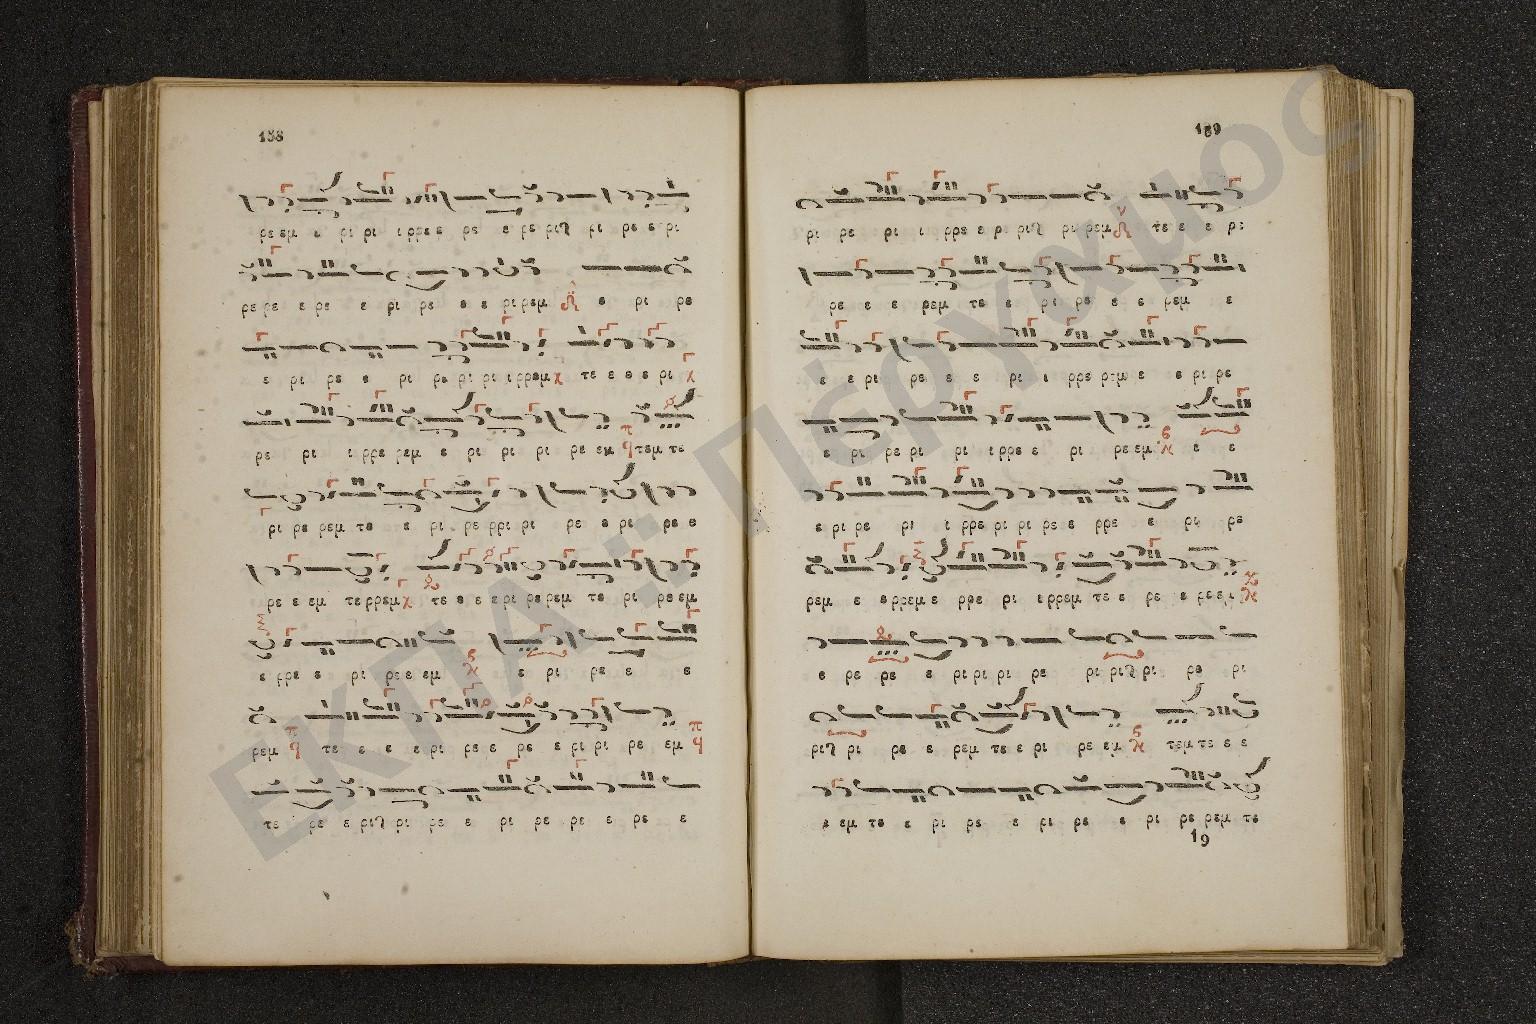 158
ρε εμ ε ρι ρι ι ρρε ε ρε ε ρε ριϛ ρι ρε ε ρι
ρε ρε ε ρε ε ρι ρε ε ε ρι ρεμ ε ρι ρε
ε ρι ρε ε ρι ρε ρι ρι ι ρρεμ τε ε ε ε ρι
ρε ρι ι ρρε ρεμ ε ρι ρι ρι ρι ρε εμ τεμ τε
ρι ρε ρεμ τε ε ρι ρε ρρι ρι ρε ε ρι ρε ε
ρε ε εμ τε ρρεμ τε ε ε ε ρι ρε ρεμ τε ρι ρε εμ
ε ρρε ε ρι ρε ε εμ ε ρι ρε ε ε
ρεμ τε ε ε ε ρι ρε ε ρε ε ρι ρι ρε εμ
τε ρε ε ριϛ ρι ρε ε ρι ρε ρε ε ρε ε
159
ρι ρε ρι ι ρρε ε ρι ριϛ ρι ρεμ τε ε ε ρε
ρε ε ε ρεμ τε ε ρι ρε ε ε ρεμ ε
ε ε ρι ρε ε ε ρι ι ρρε ρεμ ε ε ρι ρε
ε ρι ρε ρι ρι ι ρρε ε ρι ρε εμ ε ε
ε ρι ρε ρι ι ρρε ρι ρι ρε ε ρρε ε ρι ρε
ρεμ ε ε ρρεμ ε ρρε ρι ε ρρεμ τε ε ρε ε ρε εμ
ε ρε ρε ε ρι ρι ρι ρε ρι ριϛ ρι ρε ρι
ριϛ ρι ρε ε ρεμ τε ε ρι ρε εμ τεμ τε ε ε
ε εμ τε ε ρι ρε ε ρι ρε ε ρι ρε ρεμ τε
19
ΕΚΠΑ :: Πέργαμος